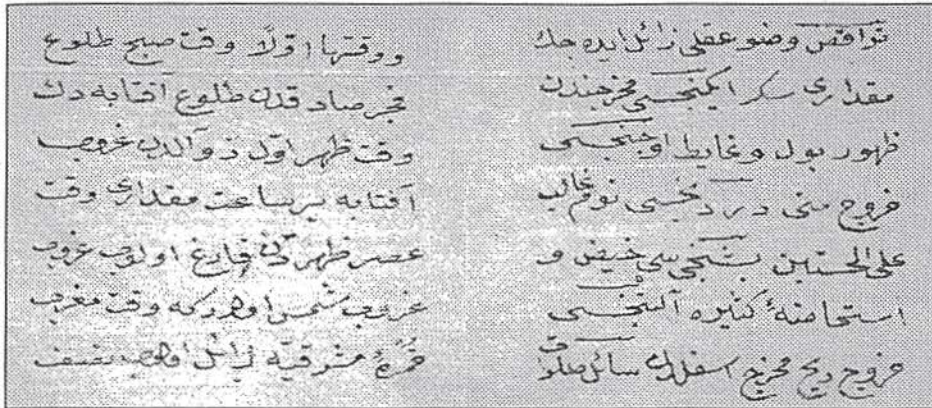 نواقض وضو عقلی زائل ایده جك
مقداری سكر ایكنجسی مخرجیندن
ظهور بول و غایط اوچنجسی
خروج منی دردنجسی نوم غالب
علی الحستین بشنجی سی حیض و
استحاضهٔ كثیره آلتنجسی
خروج ریح مخرج اسفلدن سائل صلوة
ووقتها اوّلًا وقت صبح طلوع
فجر صادقدن طلوع آفتابه دك
وقت ظهر اوّل زوآلدن غروب
آفتابه بر ساعت مقداری وقت
عصر ظهردن فارغ اولوب غروب
غروب شمس اولدركه وقت مغرب
حُمرهٔ مشرقیّه زائل اولوب نصف